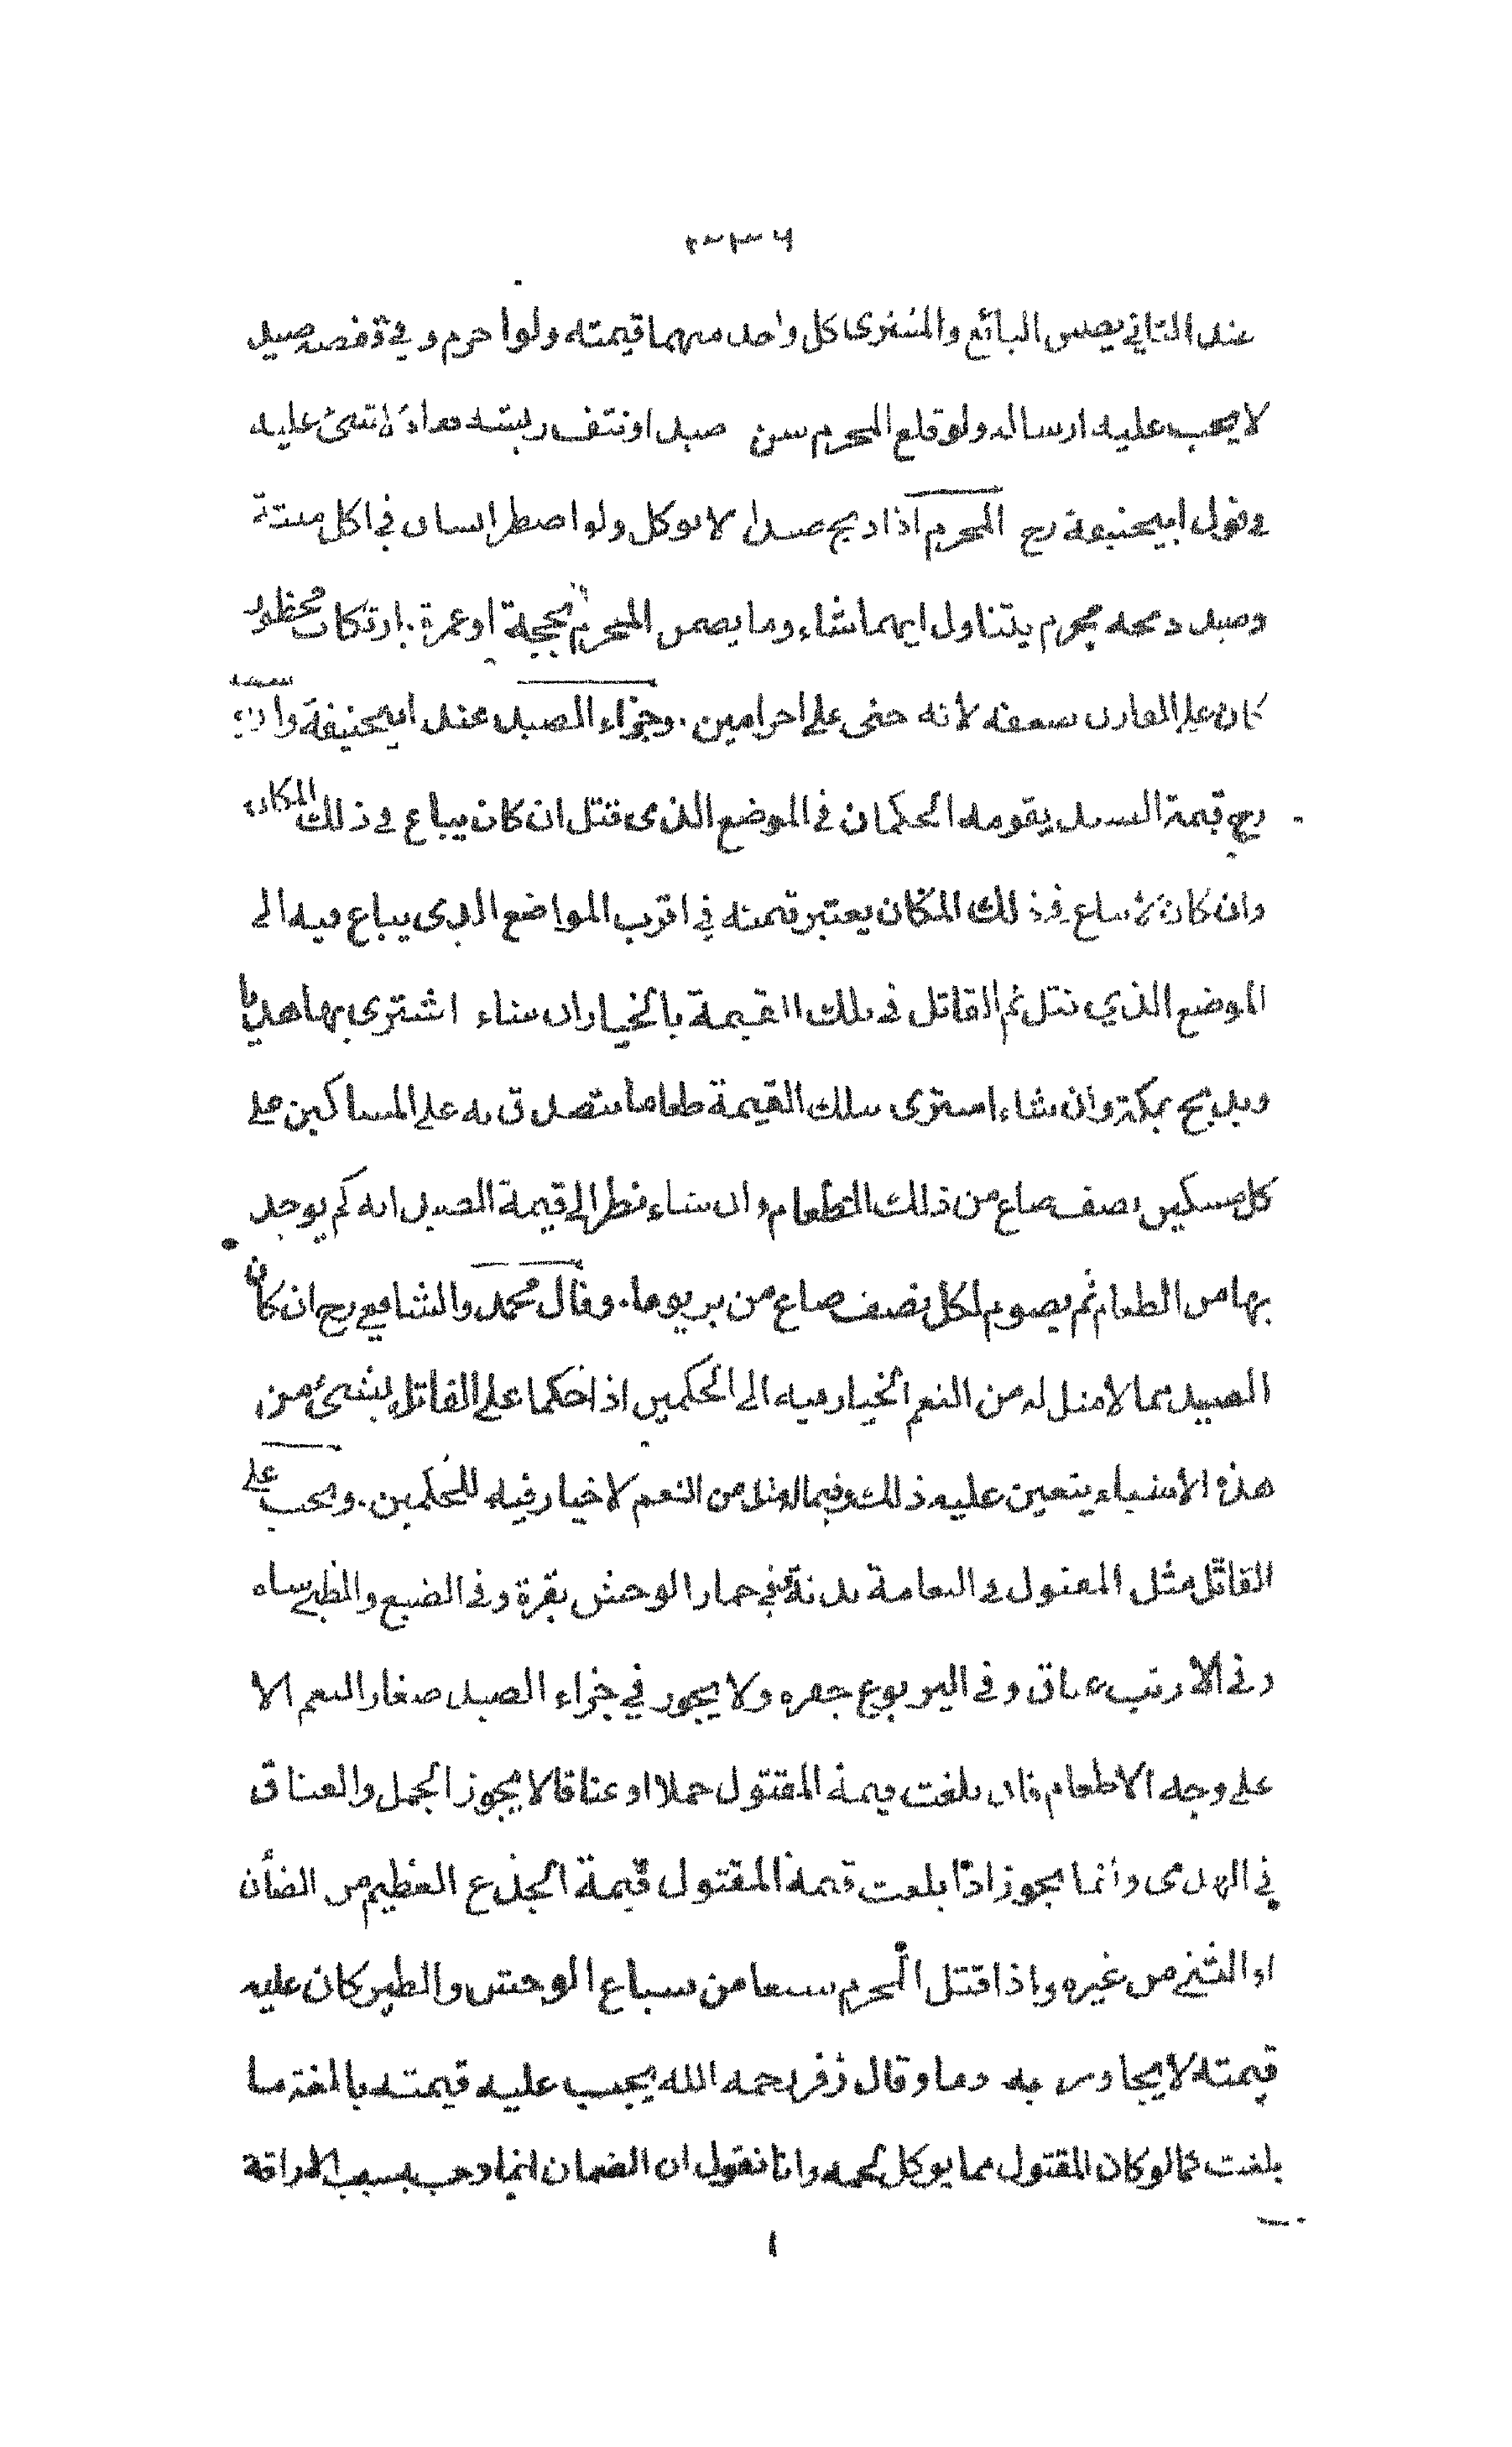 عند الثاني يضمن البائع والمشتري كل واحد منهما قيمته ولو احرم وفي قفصه صيد
لا يجب عليه ارساله ولو قلع المحرم سن صيد او نتف ريشته فعاد لا شئ عليه
في قول ابيحنيفة رح المحرم اذا ذبح صيدا لا يوكل ولو اضطر انسان في اكل ميتة
وصيد ذبحه محرم يتناول ايهما شاء وما يضمن المحرم بحجة او عمرة بارتكاب محظور
كان على القارن ضعفه لانه جنى على احرامين وجزاء الصيد عند ابيحنيفة وابي يوسف
رح قيمة الصيد يقومه الحكمان في الموضع الذى قتل ان كان يباع في ذلك المكان
وان كان لا يباع في ذلك المكان يعتبر قيمته في اقرب المواضع الذى يباع فيه الى
الموضع الذي قتل ثم القاتل في تلك القيمة بالخيار ان شاء اشترى بها هديا
ويذبح بمكة وان شاء اشترى بتلك القيمة طعاما يتصدق به على المساكين على
كل مسكين نصف صاع من ذلك الطعام وان شاء نظر الى قيمة الصيد انه كم يوجد
بها من الطعام ثم يصوم لكل نصف صاع من بر يوما وقال محمد والشافعي رح ان كان
الصيد مما لا مثل له من النعم الخيار فيه الى الحكمين اذا حكما على القاتل بشئ من
هذه الاشياء يتعين عليه ذلك وفيما له مثل من النعم لا خيار فيه للحكمين ويجب على
القاتل مثل المقتول في النعامة بدنة وفي حمار الوحش بقرة وفي الضبع والظبي شاة
وفي الارنب عناق وفي اليربوع جفرة ولا يجوز في جزاء الصيد صغار النعم الا
على وجه الاطعام فان بلغت قيمة المقتول حملا او عناقا لا يجوز الحمل والعناق
في الهدى وانما يجوز اذا بلغت قيمة المقتول قيمة الجذع العظيم من الضأن
او الثني من غيره واذا قتل المحرم سبعا من سباع الوحش والطير كان عليه
قيمته لا يجاوز به دما وقال زفر رحمه الله يجب عليه قيمته بالغة ما
بلغت كما لو كان المقتول مما يوكل لحمه وانا نقول ان الضمان انما وجب بسبب الاراقة